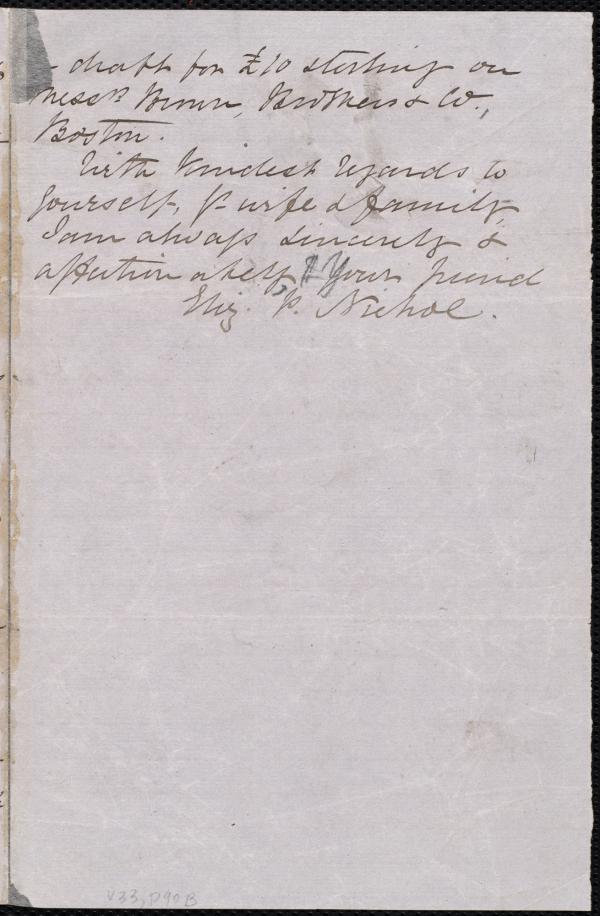 - draft for £10 sterling on
Messrs Brown, Brothers & Co.,
Boston.
With kindest regards to
yourself, yr wife & family,
I am always sincerely &
affectionately, Your friend
Eliz. P. Nichol.
v.33, p90B